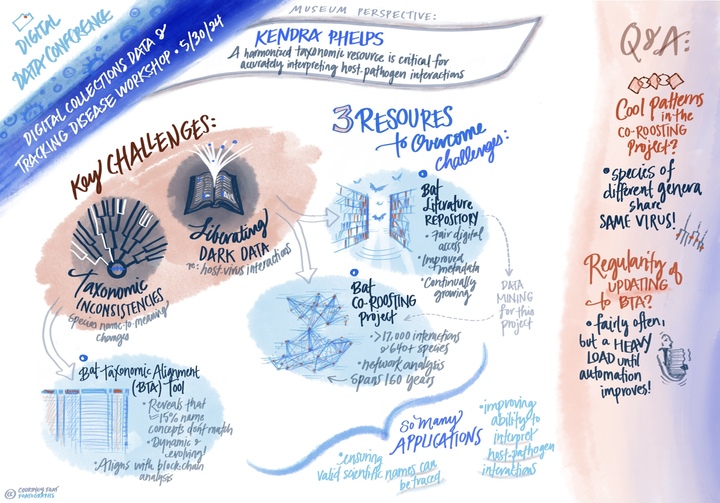 DIGITAL
DATA CONFERENCE
DIGITAL COLLECTIONS DATA &
TRACKING DISEASE WORKSHOP • 5/30/24
MUSEUM PERSPECTIVE:
KENDRA PHELPS
A harmonized taxonomic resource is critical for
accurately interpreting host-pathogen interactions
Key CHALLENGES:
Liberating
DARK DATA
re: host-virus interactions
Taxonomic
INCONSISTENCIES
species name-to-meaning
changes
3 RESOURES
to Overcome
challenges:
Bat
Literature
REPOSITORY
• Fair digital
access
• Improved
metadata
• Continually
growing
DATA
MINING
for this
project
Bat
CO-ROOSTING
Project
• >17,000 interactions
640+ species
• network analysis
spans 160 years
Bat Taxonomic Alignment
(BTA) Tool
• Reveals that
15% name
concepts don't match
• Dynamic &
evolving!
• Aligns with blockchain
analysis
So Many
APPLICATIONS
• ensuring
valid scientific names can
be traced
• improving
ability to
interpret
host-pathogen
interactions
Q&A:
Cool patterns
in the
CO-ROOSTING
Project?
• species of
different genera
share
SAME VIRUS!
Regularity of
UPDATING
to BTA?
• fairly often,
but a HEAVY
LOAD until
automation
improves!